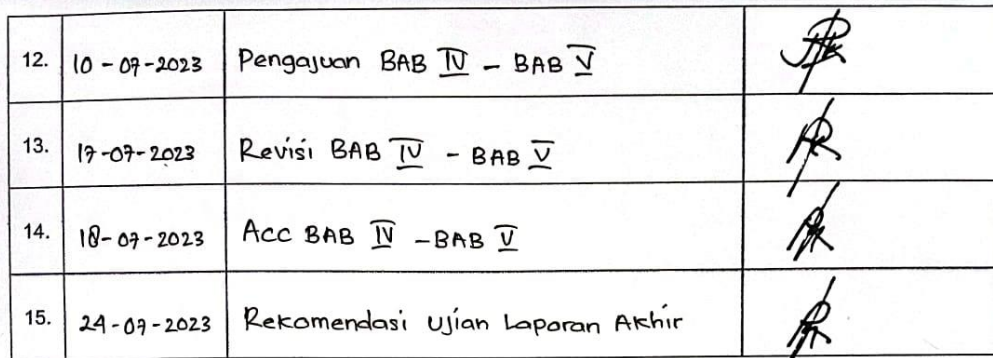 12. 10-07-2023 Pengajuan BAB IV - BAB V
13. 17-07-2023 Revisi BAB IV - BAB V
14. 18-07-2023 Acc BAB IV - BAB V
15. 24-07-2023 Rekomendasi Ujian Laporan Akhir